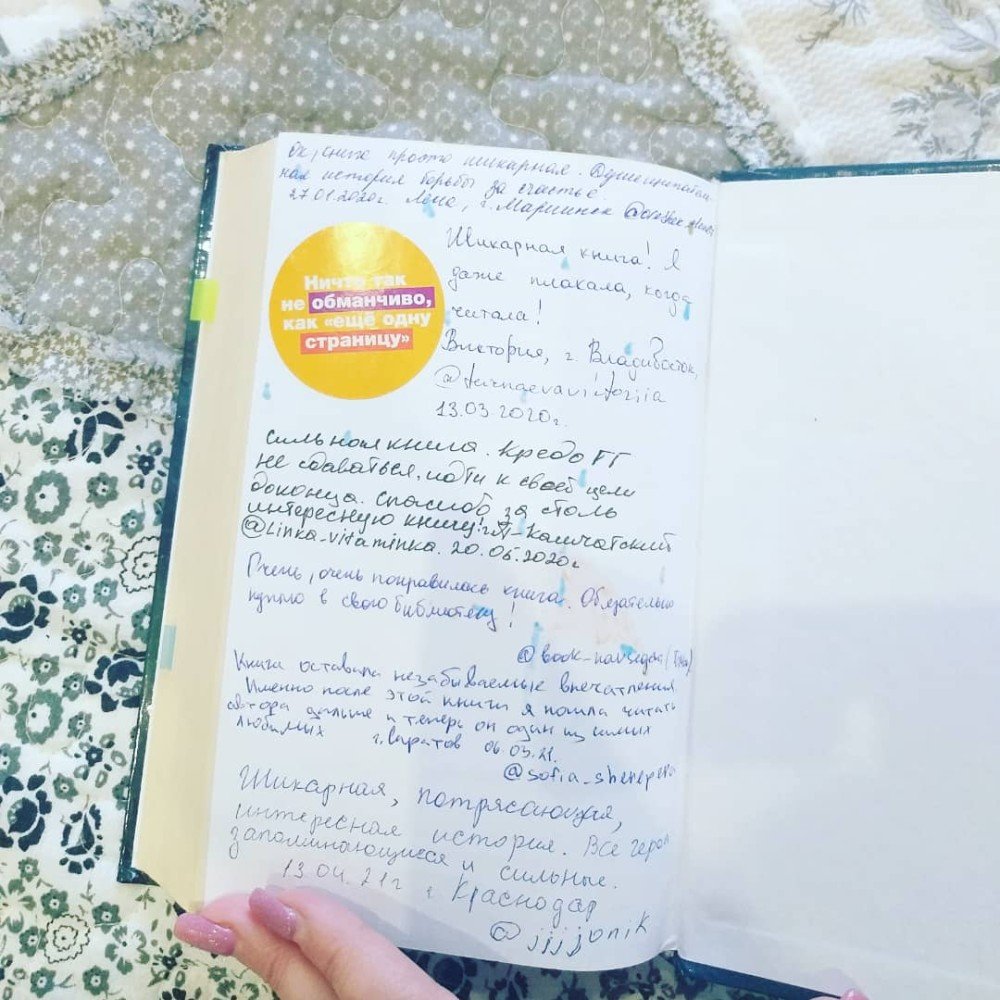 Ох, книга просто шикарная. Душещипатель
ная история борьбы за счастье
27.01.2020г. г. Мариинск
Ничто так
не обманчиво,
как «ещё одну
страницу»
Шикарная книга! Я
даже плакала, когда
читала!
Виктория, г. Владивосток,
13.03.2020г.
Сильная книга. Кредо ГГ
не сдаваться, идти к своей цели
доконца. Спасибо за столь
интересную книгу! г.П-Камчатский
@Linka_vitaminka. 20.06.2020г
Очень, очень понравилась книга. Обязательно
куплю в свою библиотеку!
Книга оставила незабываемые впечатления
Именно после этой книги я пошла читать
автора дальше и теперь он один из самых
любимых г. Саратов 06.03.21.
Шикарная, потрясающая,
интересная история. Все герои
запоминающиеся и сильные.
13.04.21г г. Краснодар
@jjjjonik